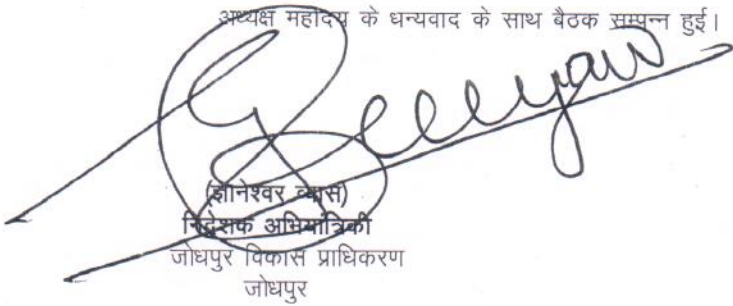 अध्यक्ष महोदय के धन्यवाद के साथ बैठक सम्पन्न हुई।
(ज्ञानेश्वर व्यास)
निदेशक अभियांत्रिकी
जोधपुर विकास प्राधिकरण
जोधपुर